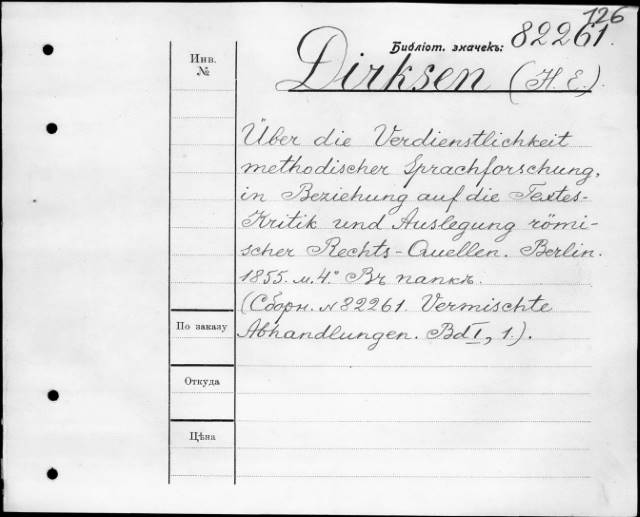 126
Библіот. значекъ: 82261.
Инв. №
Dirksen (H. E.).
Über die Verdienstlichkeit
methodischer Sprachforschung,
in Beziehung auf die Textes-
Kritik und Auslegung römi-
scher Rechts-Quellen. Berlin.
1855. м. 4° Въ папкѣ.
(Сборн. № 82261. Vermischte
Abhandlungen. Bd I, 1.).
По заказу
Откуда
Цѣна